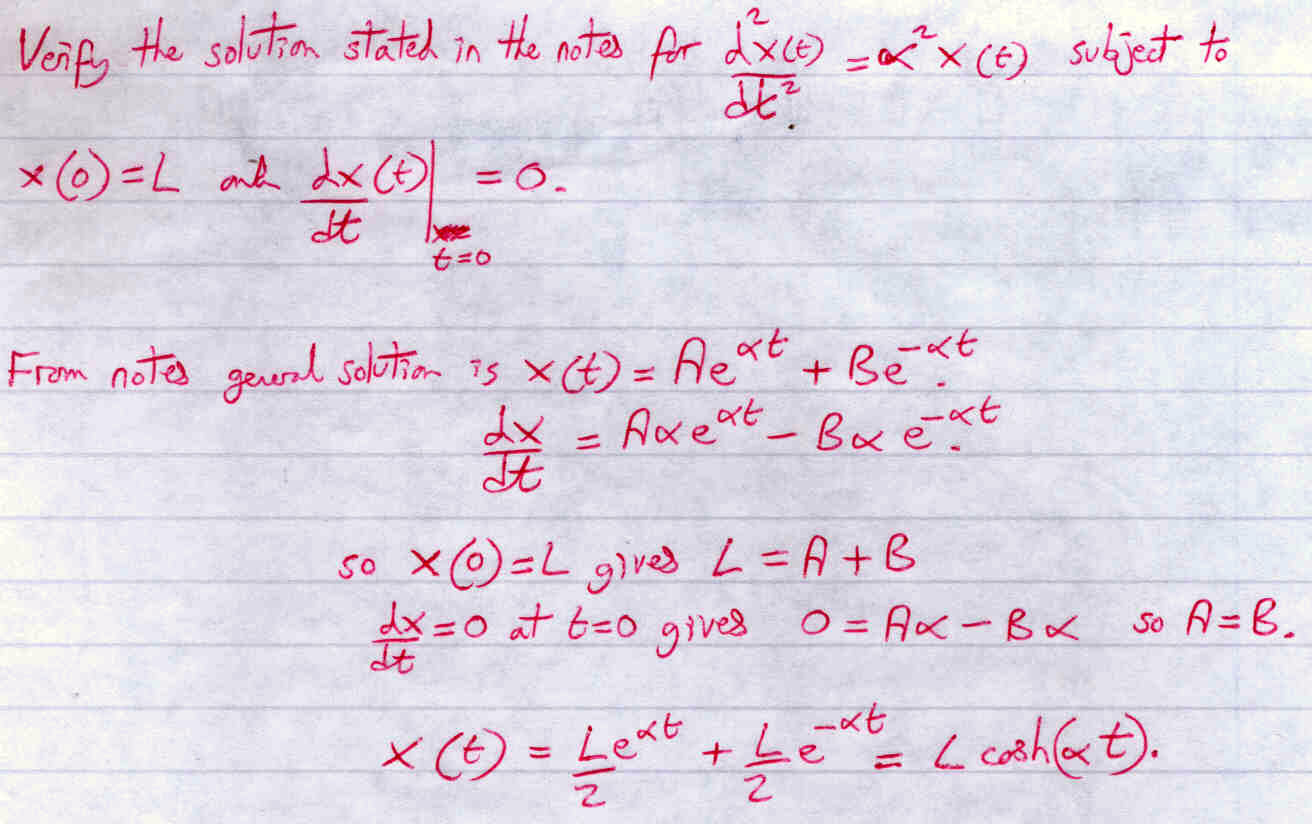 Verify the solution stated in the notes for d²x(t)/dt² = α² x(t) subject to
x(0) = L and dx(t)/dt |t=0 = 0.
From notes general solution is x(t) = Ae^αt + Be^-αt.
dx/dt = Aαe^αt - Bαe^-αt.
so x(0) = L gives L = A + B
dx/dt = 0 at t=0 gives 0 = Aα - Bα so A = B.
x(t) = L/2 e^αt + L/2 e^-αt = L cosh(αt).